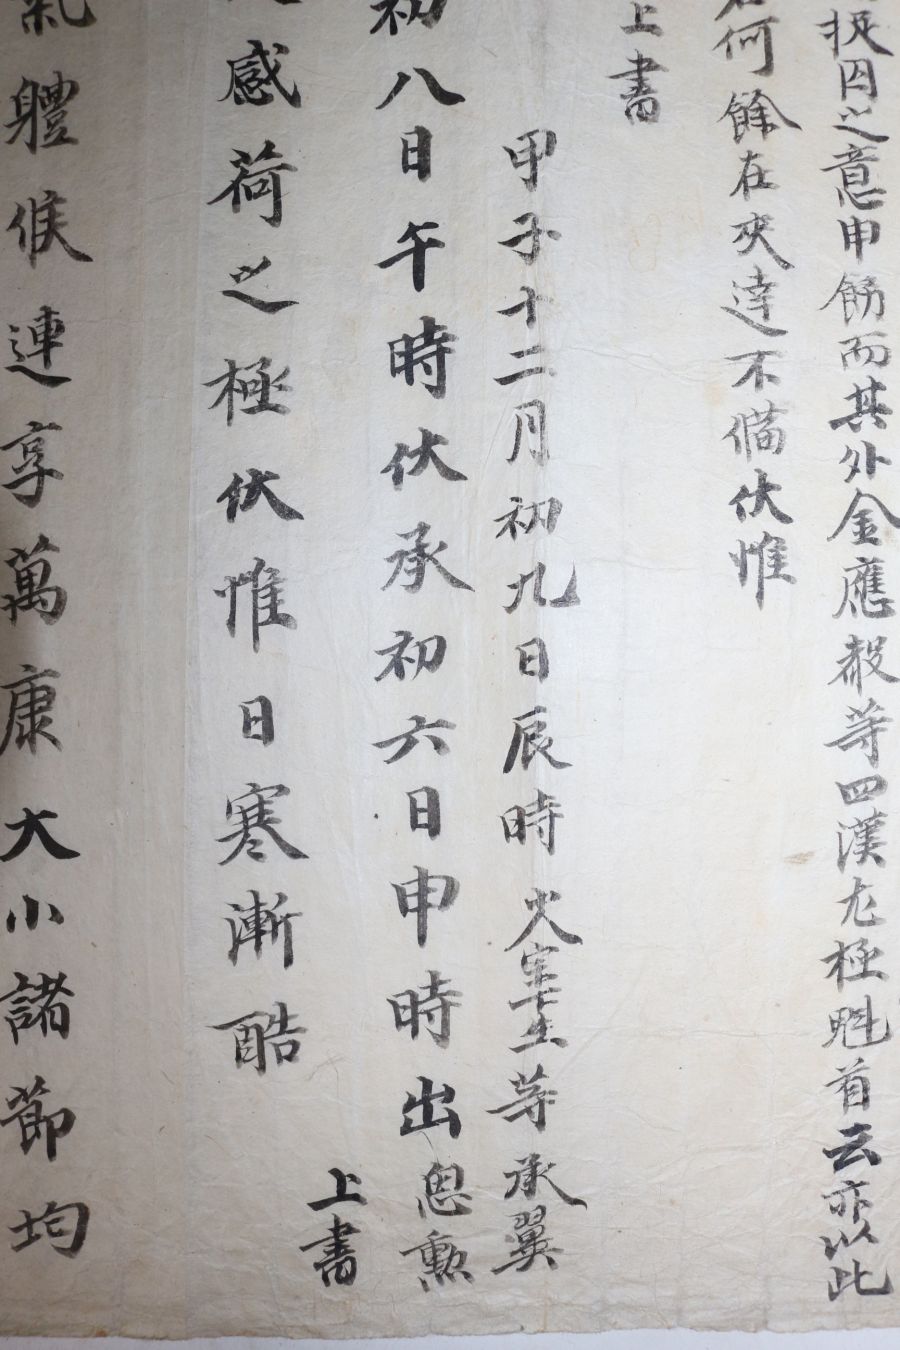 捉囚之意申飭而其外金應散等四漢尤極魁首云亦以此
何餘在夾達不備伏惟
上書
甲子十二月初九日辰時 等承翼
初八日午時伏承初六日申時出 恩勳
上書
感荷之極伏惟日寒漸酷
氣體候連享萬康大小諸節均